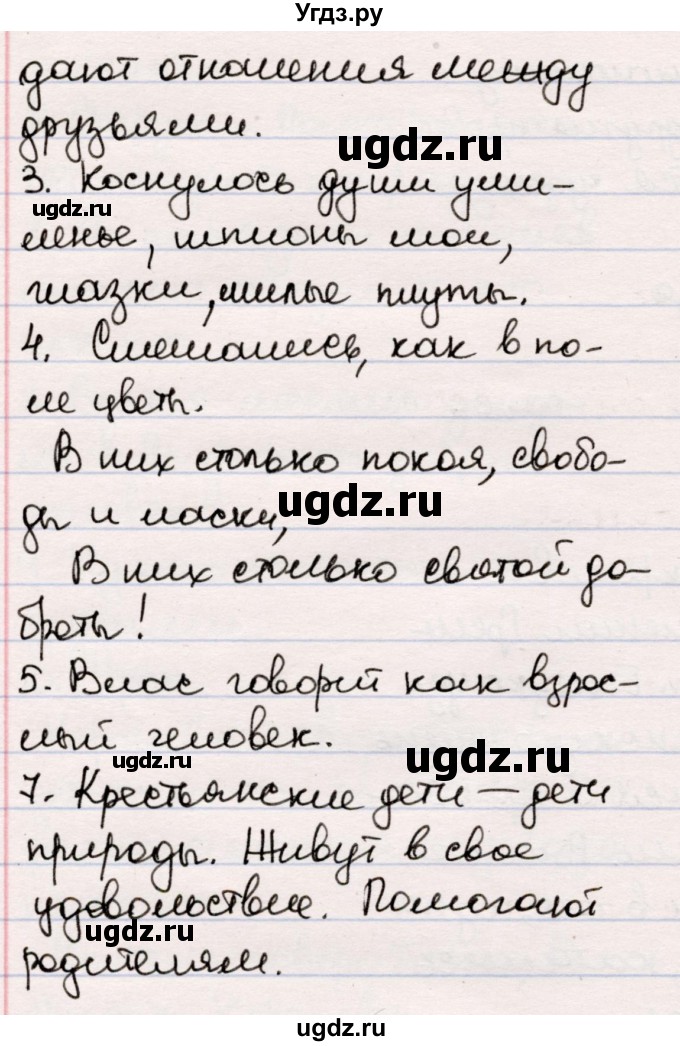 Угдз.ру
дают отношения между
друзьями.
ugdz.ru
3. Коснулось души уми-
ugdz.ru
ленье, шпионы мои,
глазки, милые плуты.
4. Смешались, как в по-
ле цветы.
В них столько покоя, свобо-
ugdz.ru
ды и ласки,
В них столько святой до-
броты!
5. Влас говорит как взрос-
лый человек.
ugdz.ru
ugdz.ru
7. Крестьянские дети — дети
природы. Живут в свое
удовольствие. Помогают
ugdz.ru
родителям.
ugdz.ru